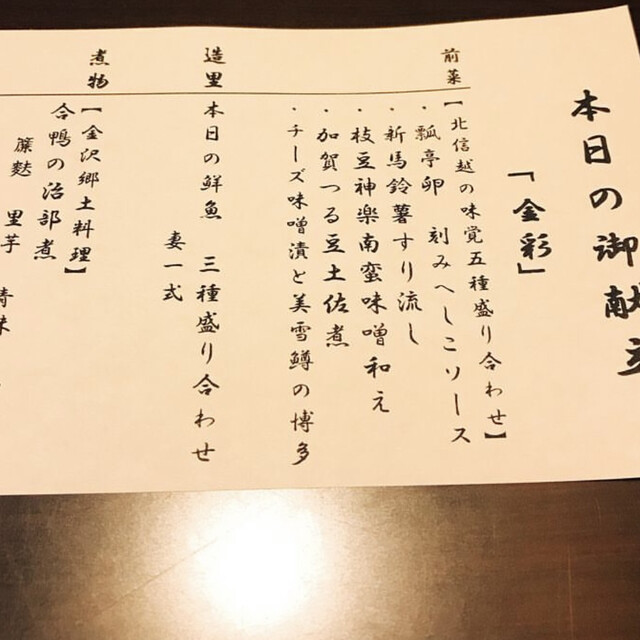 本日の御献立
「金彩」
前菜
【北信越の味覚五種盛り合わせ】
・瓢亭卵 刻みへしこソース
・新馬鈴薯すり流し
・枝豆神楽南蛮味噌和え
・加賀つる豆土佐煮
・チーズ味噌漬と美雪鱒の博多
造里
本日の鮮魚 三種盛り合わせ
妻一式
煮物
【金沢郷土料理】
合鴨の治部煮
簾麩 里芋 青味